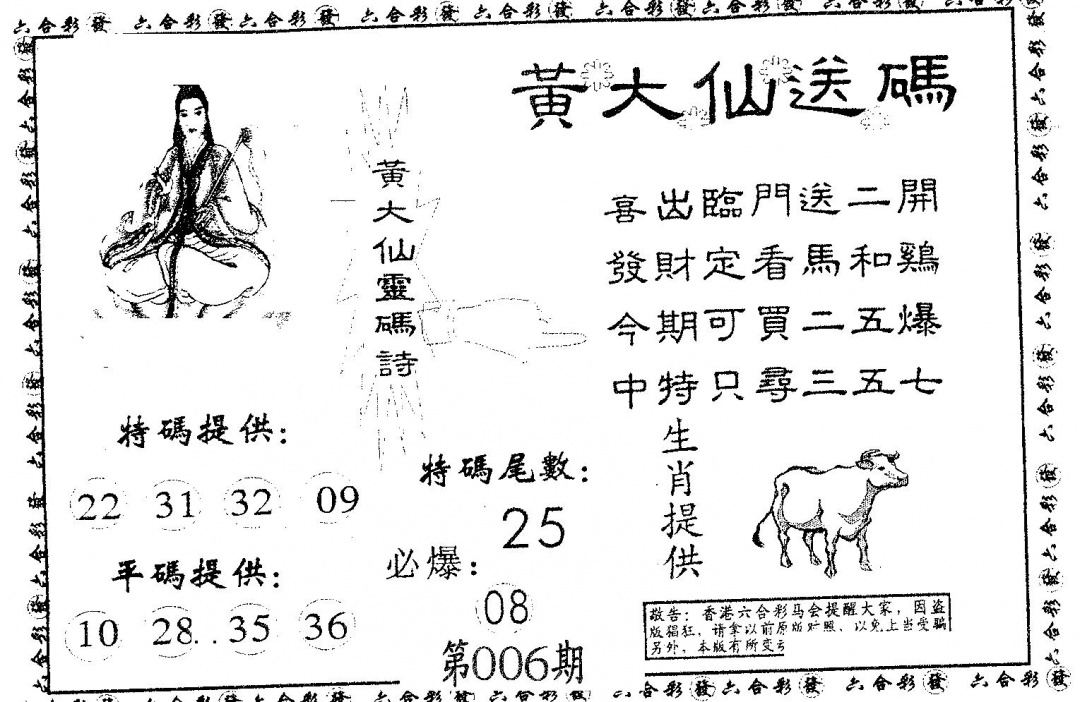 六合彩發 六合彩發 六合彩發 六合彩發 六合彩發 六合彩發 六合彩發 六合彩發 六合彩發
黃大仙送碼
黃大仙靈碼詩
喜出臨門送二開
發財定看馬和鷄
今期可買二五爆
中特只尋三五七
特碼提供：
22 31 32 09
平碼提供：
10 28..35 36
特碼尾數：
25
必爆：
08
第006期
生肖提供
敬告：香港六合彩马会提醒大家，因盗
版猖狂，请拿以前原版对照，以免上当受騙
另外，本版有所变
六合彩發 六合彩發 六合彩發 六合彩